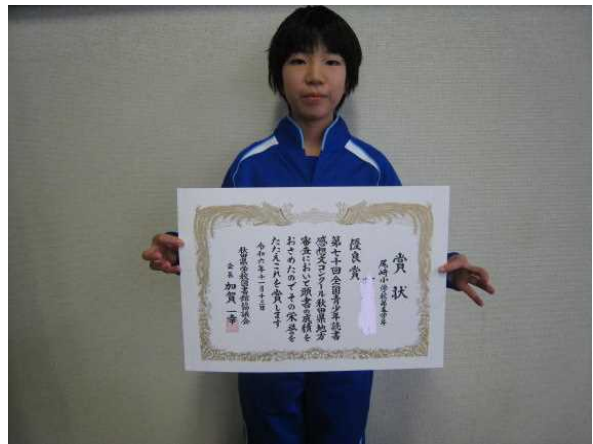 賞状
尾崎小学校第五学年
優良賞
第七十回全国青少年読書
感想文コンクール秋田県地方
審査において頭書の成績を
おさめたのでその栄誉を
たたえこれを賞します
令和六年十一月十三日
秋田県学校図書館協議会
会長 加賀一幸